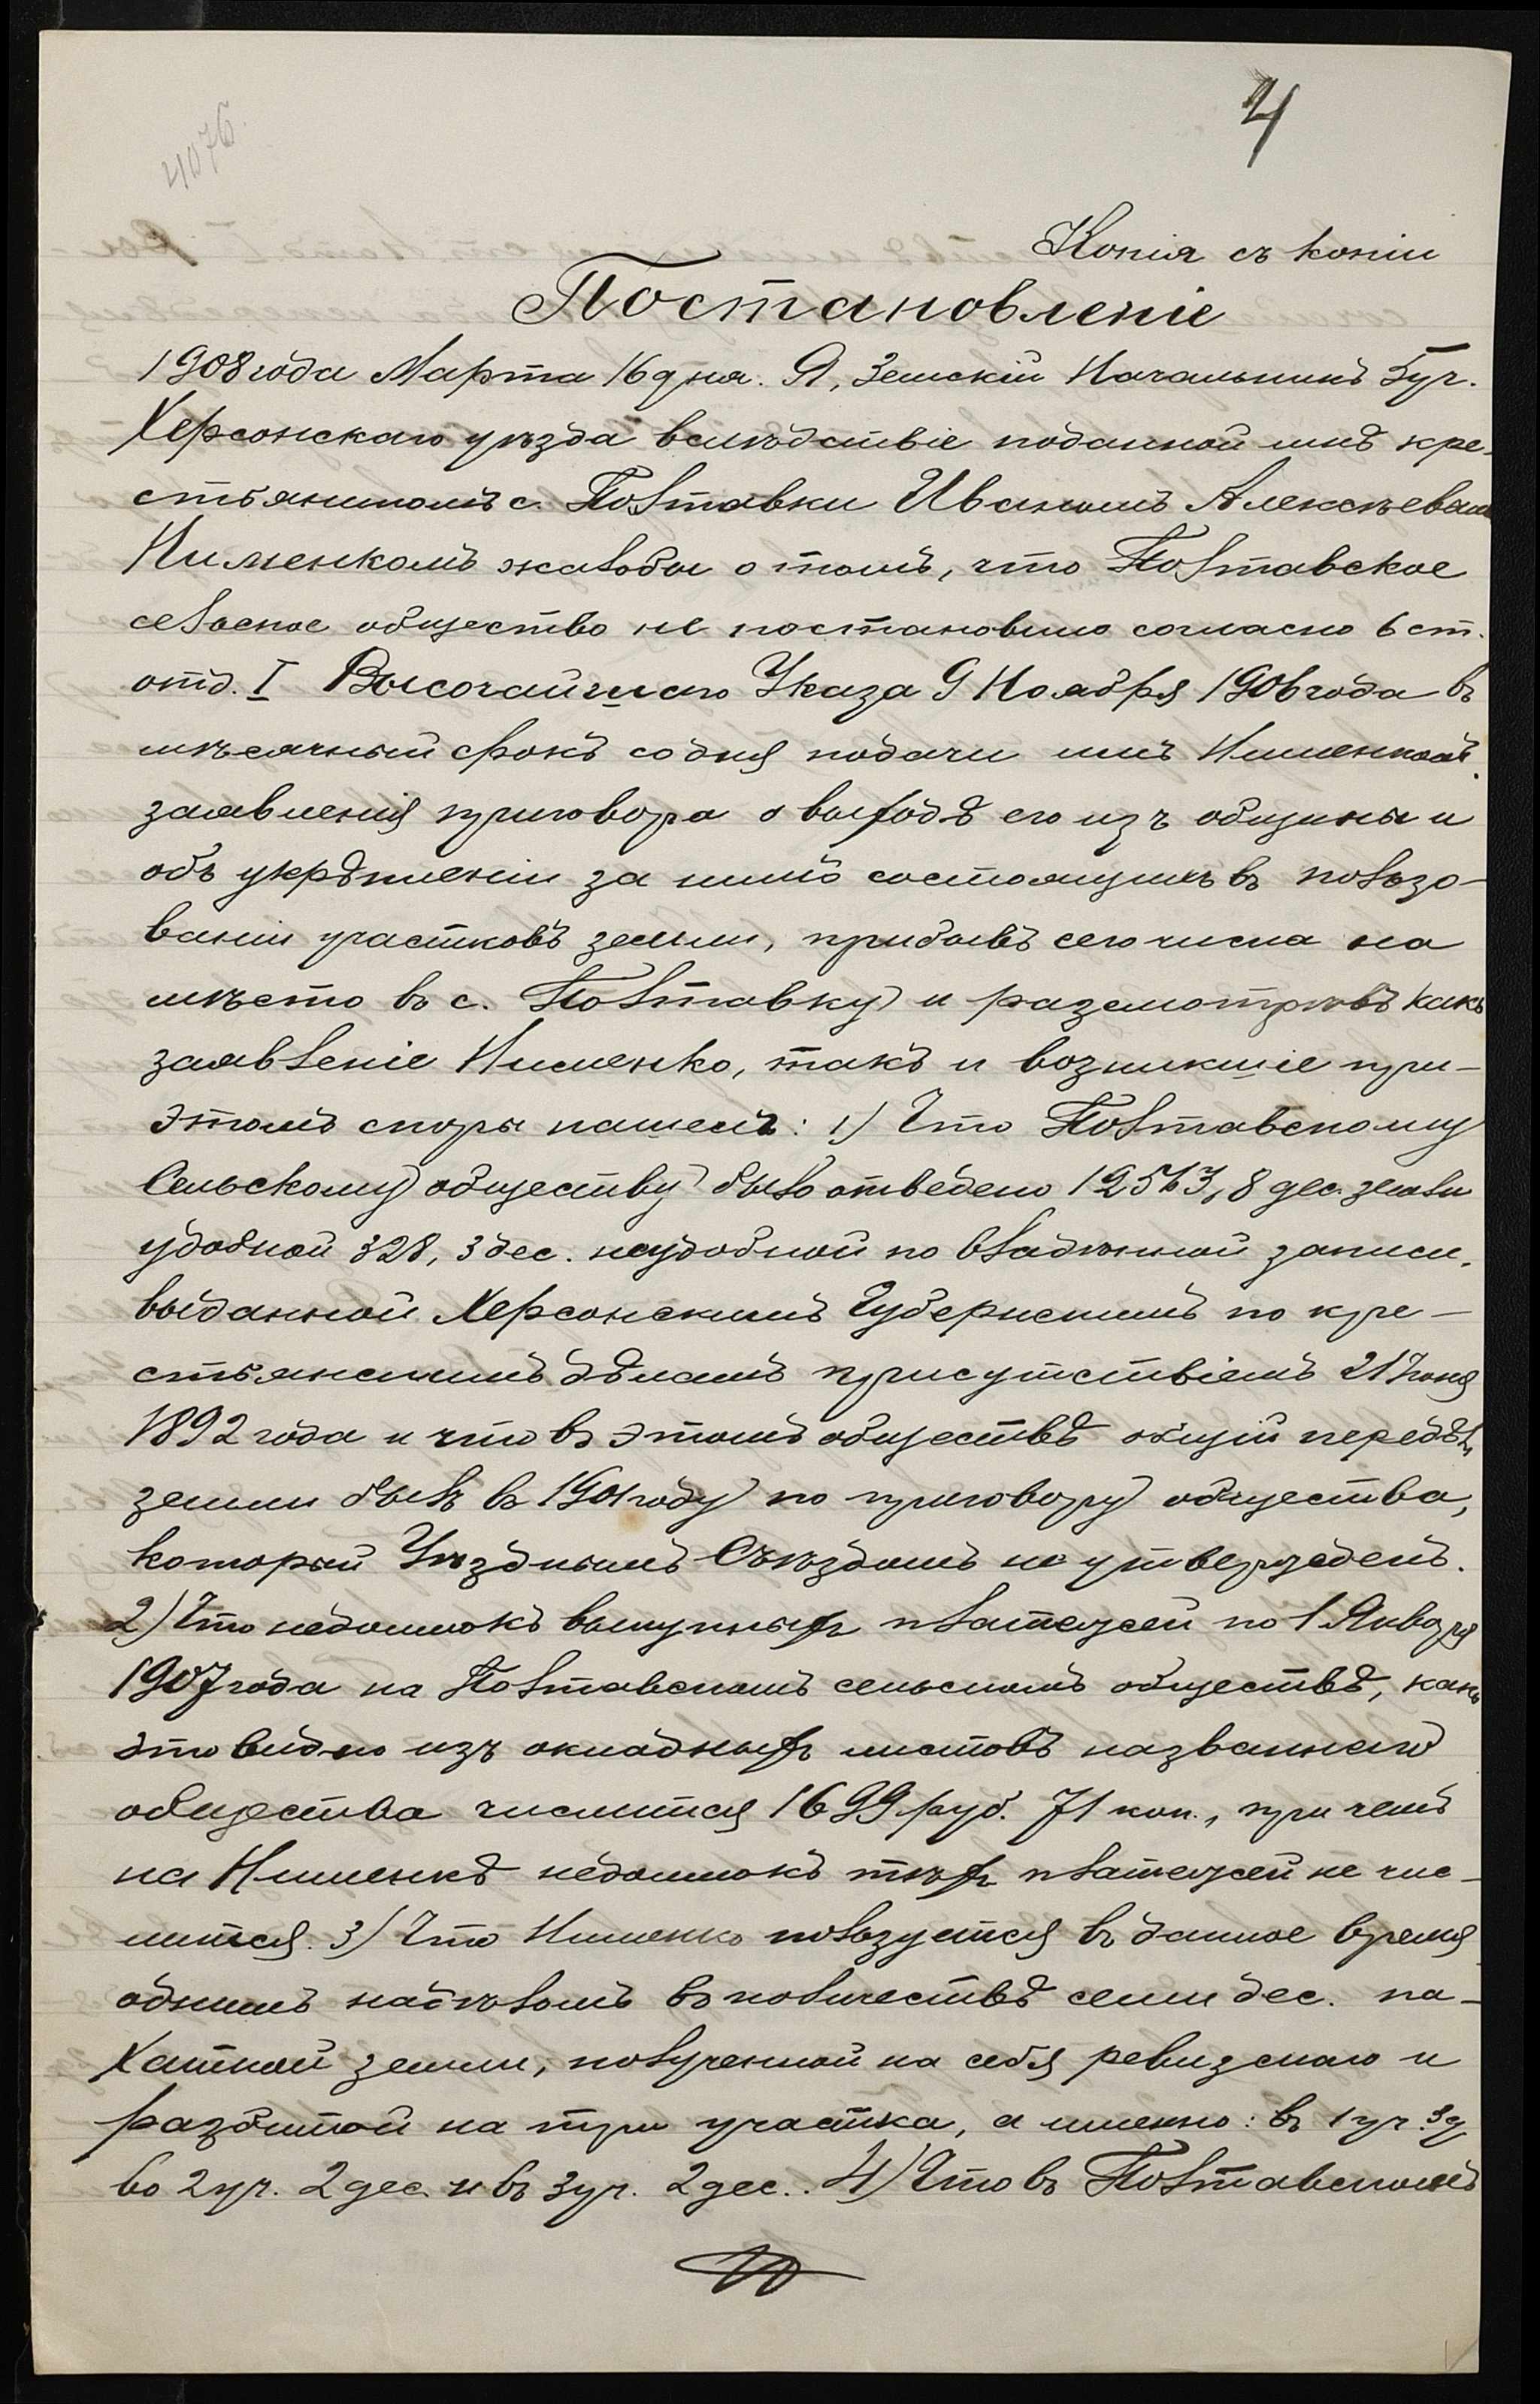 4
4076.
Копія съ копіи
Постановленіе
1908 года Марта 16 дня. Я, Земскій Начальникъ 5 уч.
Херсонскаго уѣзда вслѣдствіе поданной мнѣ кре-
стьяниномъ с. Полтавки Иваномъ Алексѣевымъ
Нименкомъ жалобы о томъ, что Полтавское
сельское общество не постановило согласно 6 ст.
отд. I Высочайшаго Указа 9 Ноября 1906 года въ
мѣсячный срокъ со дня подачи имъ Нименкомъ
заявленія приговора о выходѣ его изъ общины и
объ укрѣпленіи за нимъ состоящихъ въ пользо-
ваніи участковъ земли, прибывъ сего числа на
мѣсто въ с. Полтавку и разсмотрѣвъ какъ
заявленіе Нименко, такъ и возникшіе при-
этомъ споры нашелъ: 1) Что Полтавскому
Сельскому обществу было отведено 12563,8 дес. земли
удобной 328,3 дес. неудобной по владѣнной записи,
выданной Херсонскимъ Губернскимъ по кре-
стьянскимъ дѣламъ присутствіемъ 21 Іюня
1892 года и что въ этомъ обществѣ общій передѣлъ
земли былъ въ 1901 году по приговору общества,
который Уѣзднымъ Съѣздомъ не утвержденъ.
2) Что недоимокъ выкупныхъ платежей по 1 Января
1907 года на Полтавскомъ сельскомъ обществѣ, какъ
это видно изъ окладныхъ листовъ названнаго
общества числится 1699 руб. 71 коп., при чемъ
на Нименкѣ недоимокъ тѣхъ платежей не чис-
лится. 3) Что Нименко пользуется въ данное время
однимъ надѣломъ въ количествѣ семи дес. па-
хатной земли, полученной на себя ревизскаго и
разбитой на три участка, а именно: въ 1 уч. 3 д.
во 2 уч. 2 дес. и въ 3 уч. 2 дес.. 4) Что въ Полтавскомъ